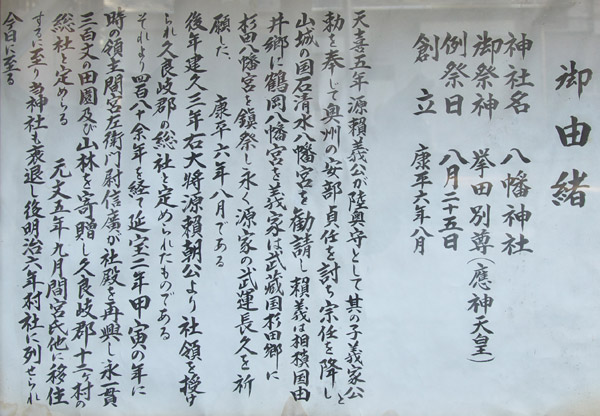 御由緒
神社名 八幡神社
御祭神 挙田別尊(應神天皇)
例祭日 八月二十五日
創立 康平六年八月
天喜五年源頼義公が陸奥守として其の子義家公と
勅を奉じて奥州の安部貞任を討ち宗任を降し
山城の国石清水八幡宮を勧請し頼義は相模国由
井郷に鶴岡八幡宮を義家は武蔵国杉田郷に
杉田八幡宮を鎮祭し永く源家の武運長久を祈
願た、 康平六年八月である
後年建久三年右大将源頼朝公より社領を授け
られ久良岐郡の総社と定められたものである
それより四百八十余年を経て延宝二年甲寅の年に
時の領主間宮左衛門尉信廣が社殿を再興し永一貫
三百文の田園及び山林を寄贈し久良岐郡十二ヶ村の
総社を定める 元文五年九月間宮氏他に移住
するに至り当神社も衰退し後明治六年村社に列せられ
今日に至る